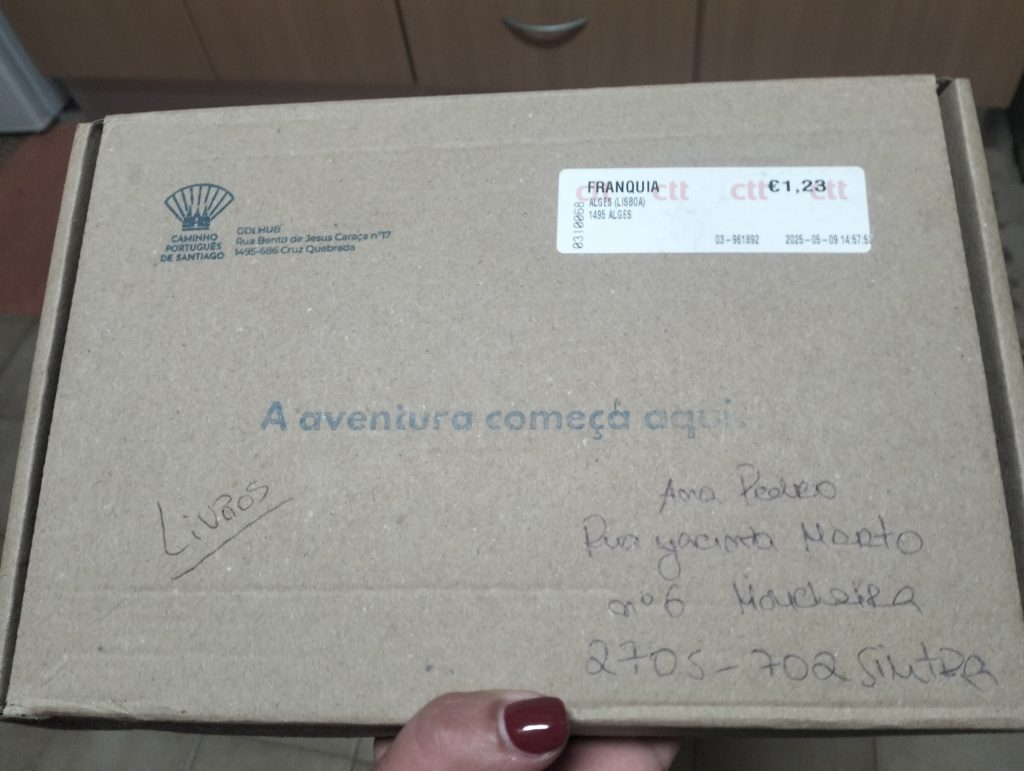 CAMINHO
PORTUGUÊS
DE SANTIAGO
GDI HUB
Rua Bento de Jesus Caraça nº17
1495-686 Cruz Quebrada
FRANQUIA €1,23
ctt ctt ctt ctt
ALGES (LISBOA)
1495 ALGES
0310068
03-961892 2025-05-09 14:57:5
A aventura começa aqui.
Livros
Ana Pedro
Rua Jacinta Marto
nº 6
2705-702 Sintra